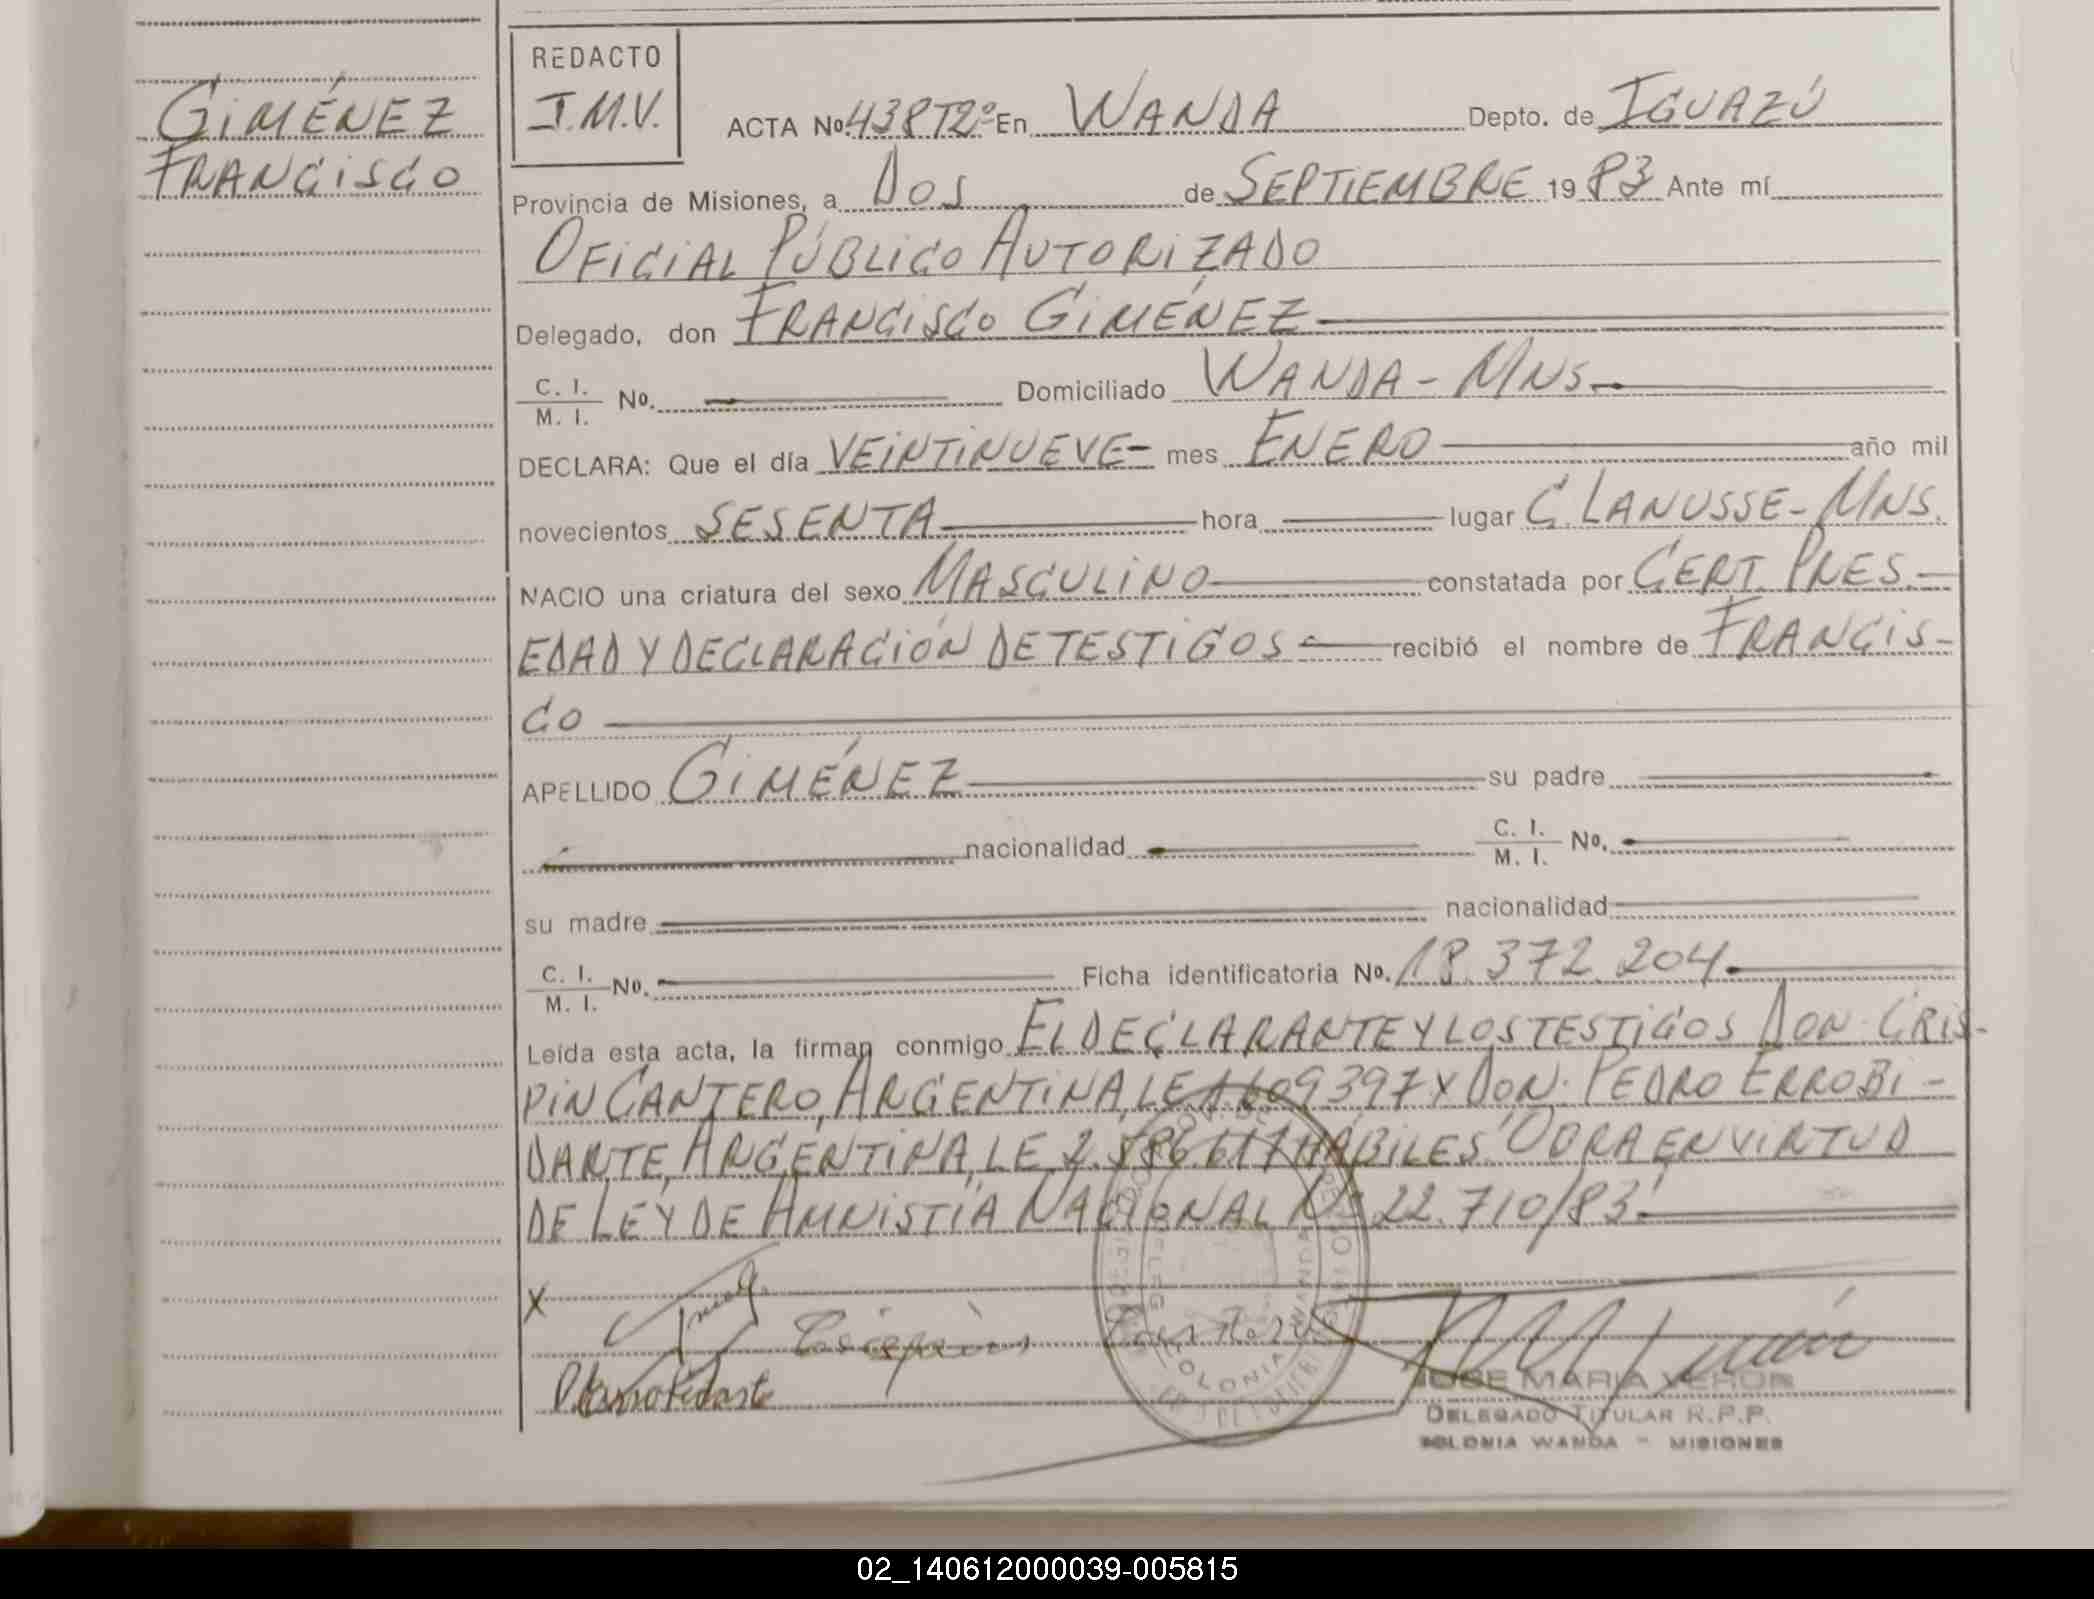 GIMÉNEZ
FRANCISCO
REDACTO
J.M.V.
ACTA No. 438T2º En WANDA Depto. de IGUAZÚ
Provincia de Misiones, a DOS de SEPTIEMBRE 1983 Ante mí
OFICIAL PÚBLICO AUTORIZADO
Delegado, don FRANCISCO GIMÉNEZ
C. I. / M. I. No. Domiciliado WANDA - MNS.
DECLARA: Que el día VEINTINUEVE - mes ENERO año mil
novecientos SESENTA hora lugar C. LANUSSE - MNS.
NACIO una criatura del sexo MASCULINO constatada por CERT. PRES.
EDAD Y DECLARACIÓN DE TESTIGOS recibió el nombre de FRANCIS-
CO
APELLIDO GIMÉNEZ su padre
nacionalidad C. I. / M. I. No.
su madre nacionalidad
C. I. / M. I. No. Ficha identificatoria No. 18.372.204
Leída esta acta, la firman conmigo EL DECLARANTE Y LOS TESTIGOS DON CRIS-
PIN CANTERO, ARGENTINA, LE 1609397 Y DON PEDRO ERROBI-
DARTE, ARGENTINA, LE 2.586.617 HÁBILES. OBRA EN VIRTUD
DE LEY DE AMNISTÍA NACIONAL Nº 22.710/83.
X
Crispin Cantero
COLONIA WANDA
JOSE MARIA VERON
DELEGADO TITULAR R.P.P.
COLONIA WANDA - MISIONES
02_140612000039-005815